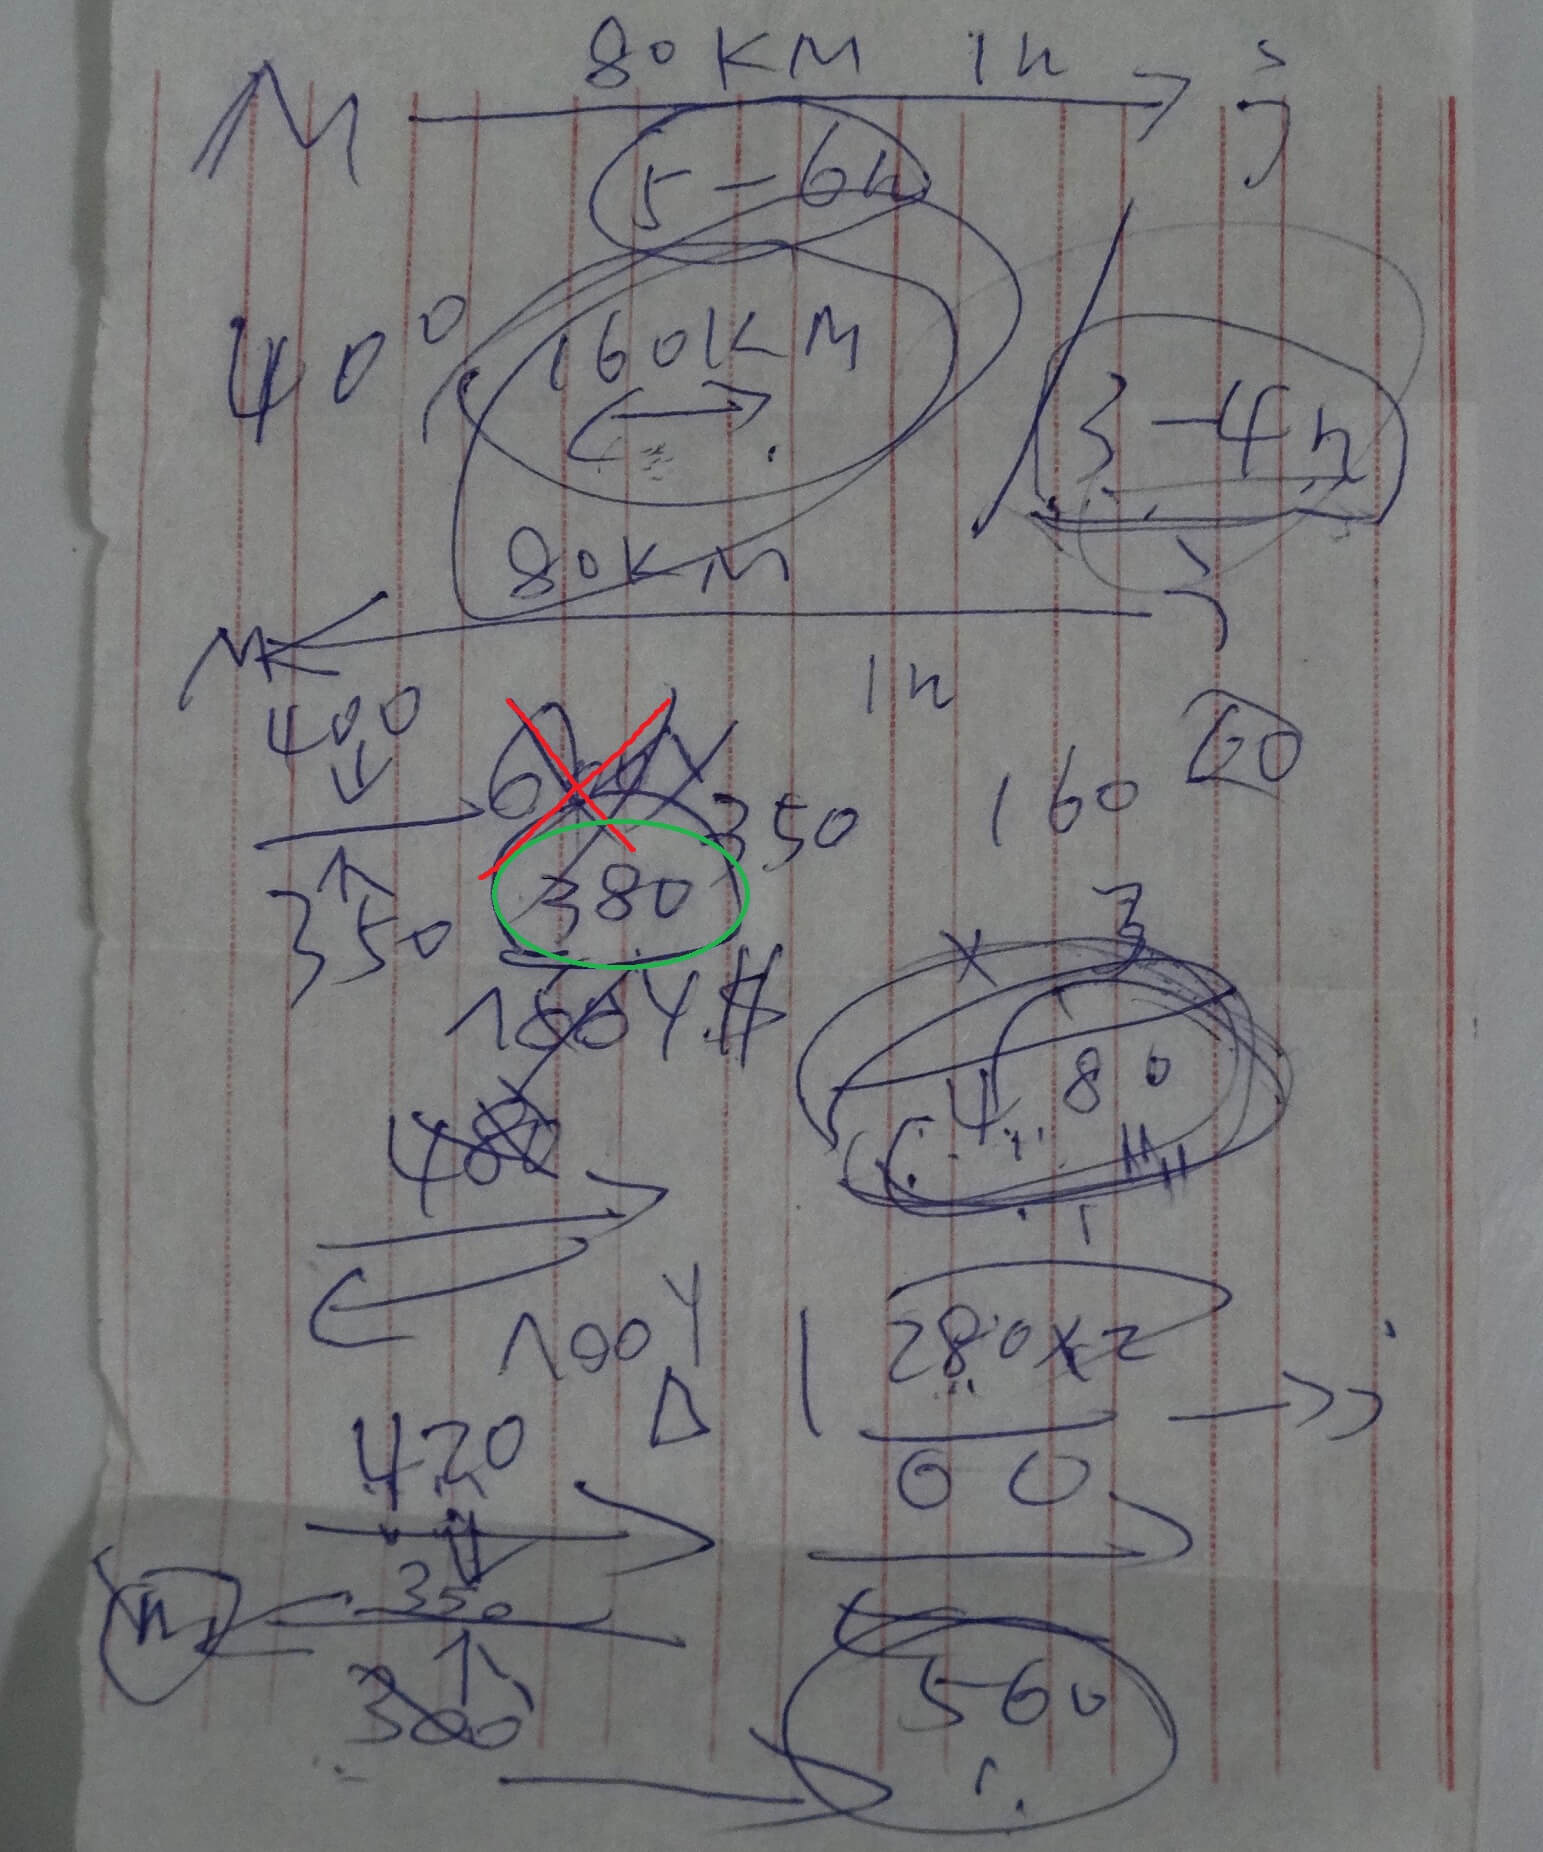 M 80 KM 1h j
5-6h
400
160KM
3-4h
80KM
M j
1h
400
350 160 60
380
350
3
100Y
480
400
100Y
280x2
j
420
60
350
300
560